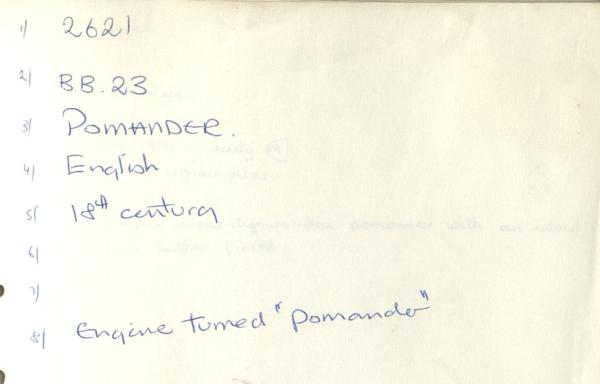 1) 2621
2) BB.23
3) POMANDER.
4) English
5) 18th century
6)
7)
8) Engine turned "pomander"